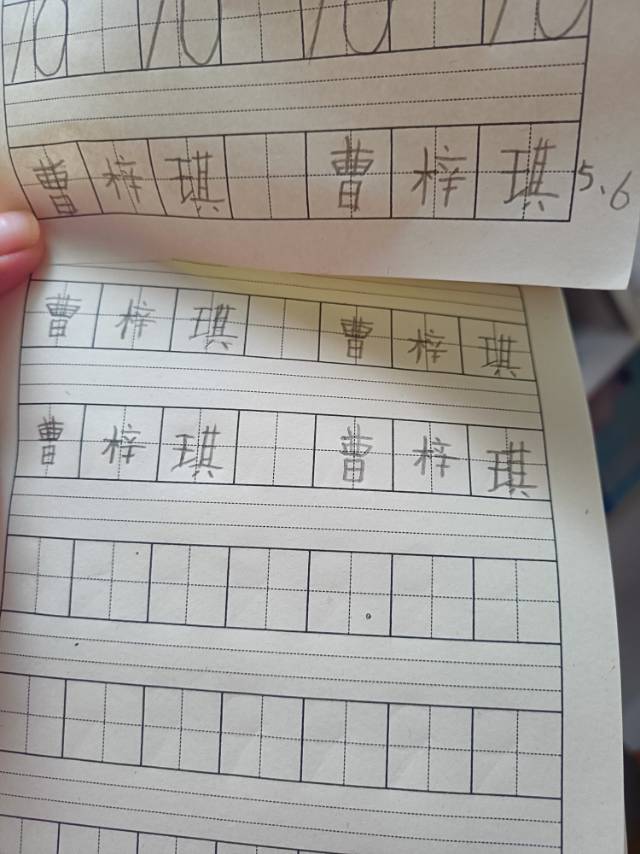 10 10 10 10
曹梓琪 曹梓琪 5、6
曹梓琪 曹梓琪
曹梓琪 曹梓琪